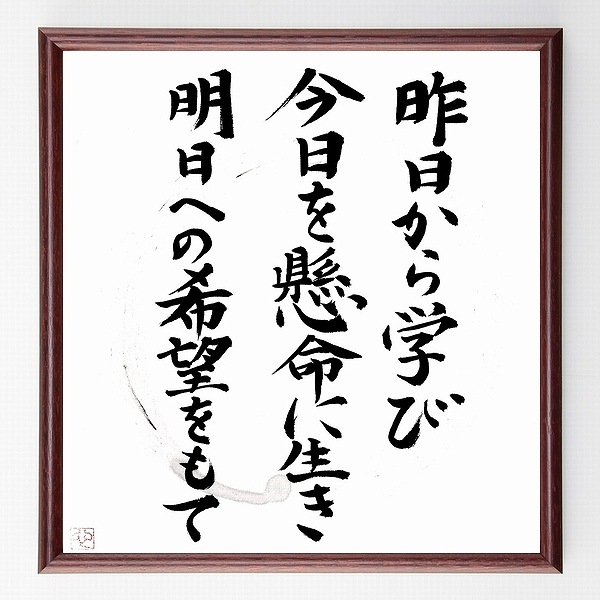 昨日から学び
今日を懸命に生き、
明日への希望をもて